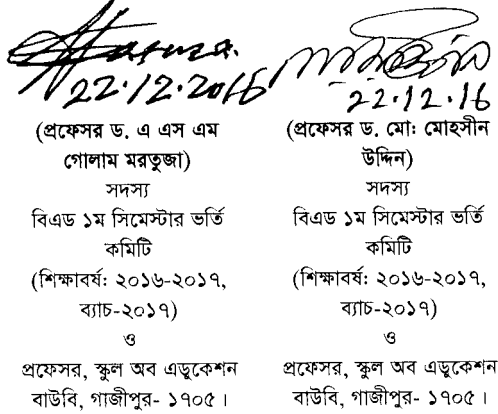 22.12.2016
(প্রফেসর ড. এ এস এম
গোলাম মরতুজা)
সদস্য
বিএড ১ম সিমেস্টার ভর্তি
কমিটি
(শিক্ষাবর্ষ: ২০১৬-২০১৭,
ব্যাচ-২০১৭)
ও
প্রফেসর, স্কুল অব এডুকেশন
বাউবি, গাজীপুর- ১৭০৫।
22.12.16
(প্রফেসর ড. মো: মোহসীন
উদ্দিন)
সদস্য
বিএড ১ম সিমেস্টার ভর্তি
কমিটি
(শিক্ষাবর্ষ: ২০১৬-২০১৭,
ব্যাচ-২০১৭)
ও
প্রফেসর, স্কুল অব এডুকেশন
বাউবি, গাজীপুর- ১৭০৫।